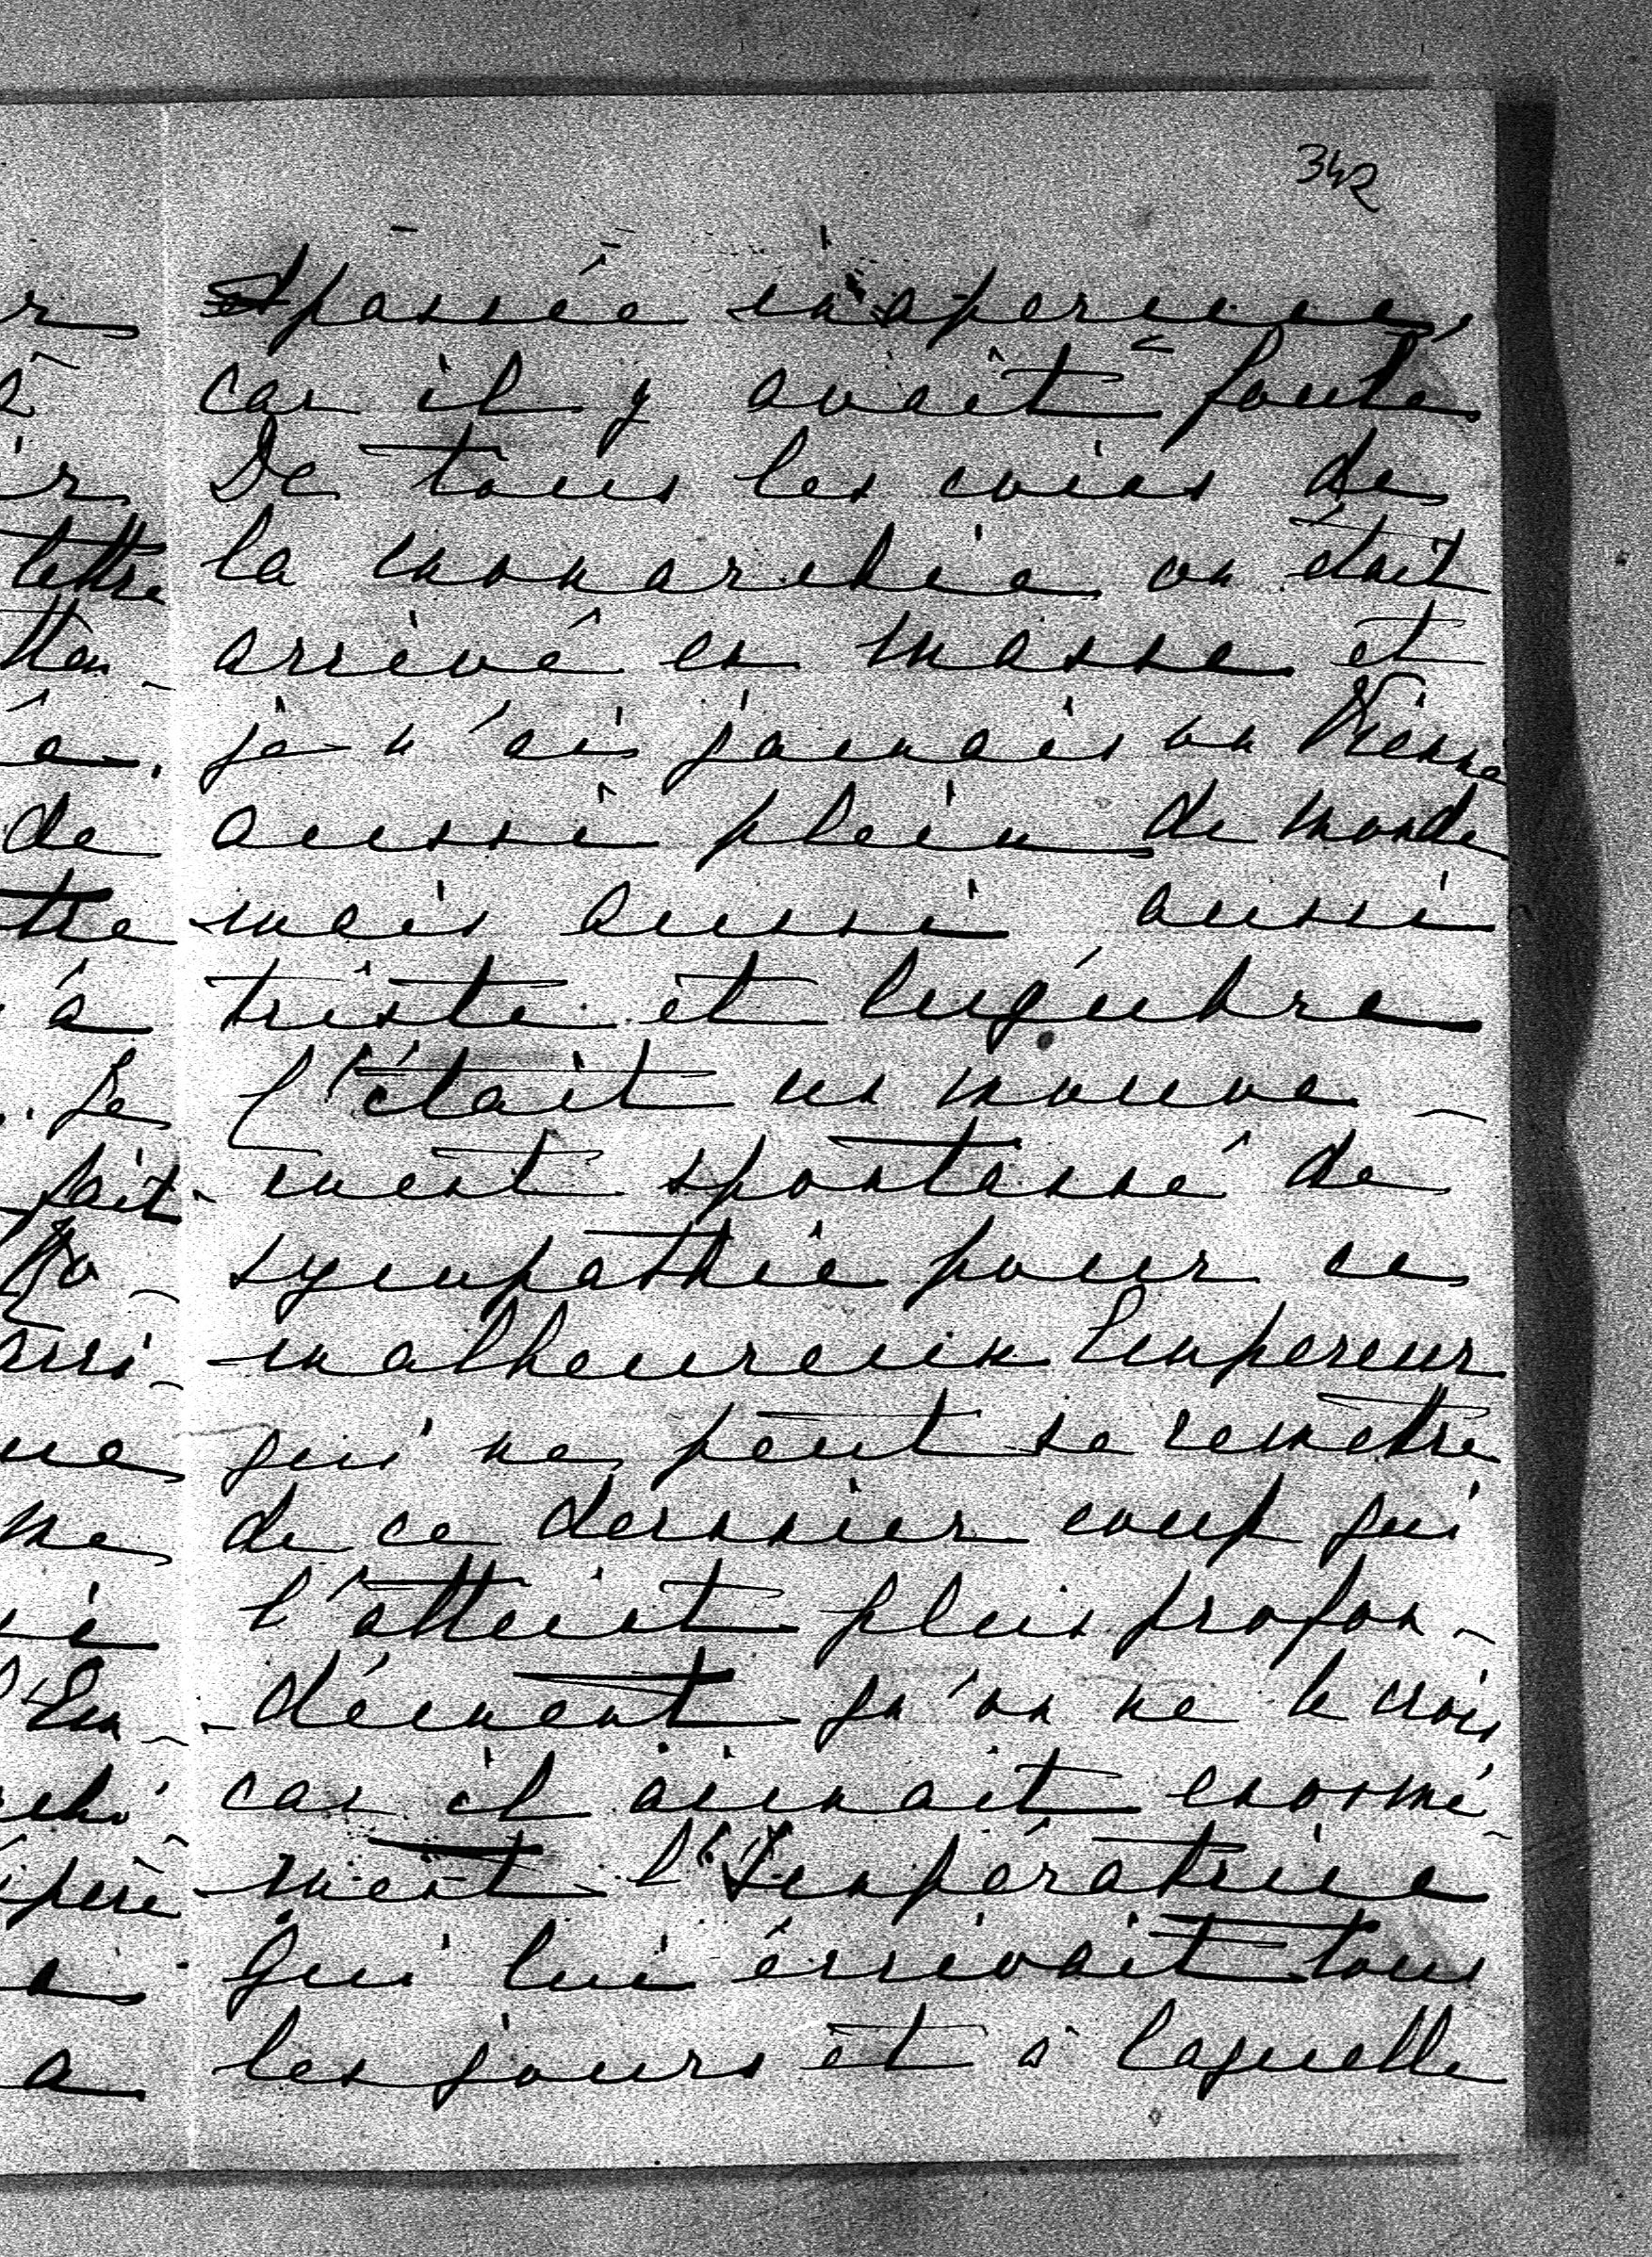 342
passée inaperçue,
car il y avait foule
De tous les coins de
la monarchie on était
arrivé en masse et
je n'ai jamais vu Vienne
aussi plein de monde
mais aussi aussi
triste et lugubre
C'était un mouve-
ment spontanné de
sympathie pour ce
malheureux Empereur
qui ne peut se remettre
de ce dernier coup qui
l'atteint plus profon-
dément qu'on ne le croit
car il aimait enormé-
ment l'Impératrice
Qui lui écrivait tous
les jours et à laquelle